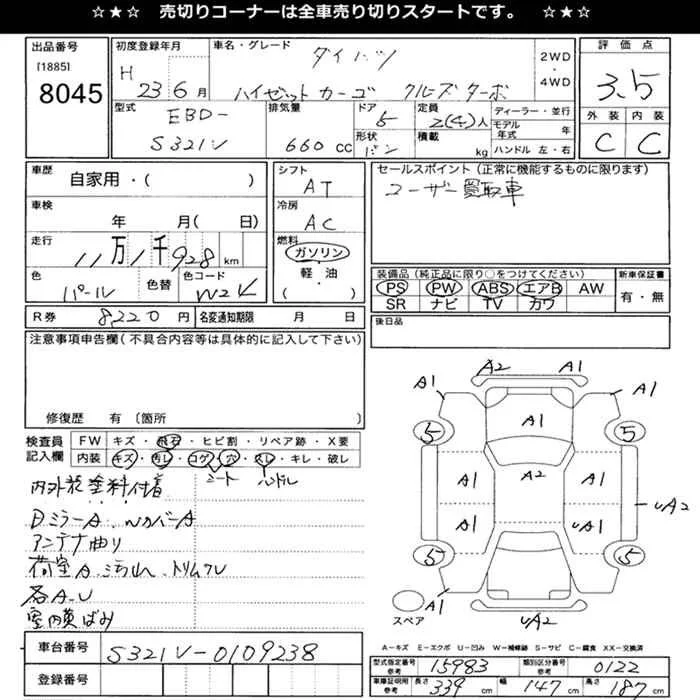 ☆★☆ 売切りコーナーは全車売り切りスタートです。 ☆★☆
出品番号
[1885]
8045
初度登録年月
H 23 6 月
車名・グレード
ダイハツ
ハイゼット カーゴ クルーズターボ
2WD
4WD
評価点
3.5
外装 内装
C C
型式
EBD-
S321V
排気量
660 cc
ドア
5
形状
バン
定員
2(4)人
積載
kg
ディーラー・並行
モデル年式 年
ハンドル 左・右
車歴
自家用・( )
車検
年 月( 日)
走行
11万1千928 km
色
パール
色替
色コード
W24
シフト
AT
冷房
AC
燃料
ガソリン
軽・油
( )
セールスポイント(正常に機能するものに限ります)
ユーザー買取車
装備品(純正品に限り○をつけてください)
PS PW ABS エアB AW
SR ナビ TV カワ
新車保証書
有・無
R券 8220 円
名変通知期限 月 日
後日品
注意事項申告欄(不具合内容等は具体的に記入して下さい)
修復歴 有 〔箇所 〕
検査員記入欄
FW キズ・飛石・ヒビ割・リペア跡・X要
内装 キズ・汚れ・コゲ・穴・スレ・キレ・破レ
シート ハンドル
内外装塗料付着
DミラーA、WカバーA
アンテナ曲り
荷室A、汚れ、トリムワレ
各A.U
室内黄ばみ
車台番号 S321V-0109238
登録番号
A2 A1
A1 A1
A1
5 5
A1 A2 A1
A1 UA1 UA2
5 5
A1 UA2
スペア
A-キズ E-エクボ U-凹み W-補修跡 S-サビ C-腐食 XX-交換済
型式指定番号 参考 15983
類別区分番号 参考 0122
車庫証明用 参考 長さ 339 cm 幅 147 cm 高さ 187 cm